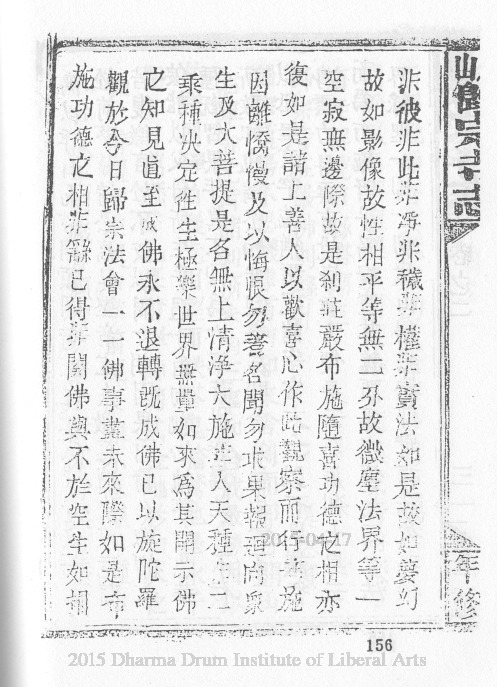 非彼非此非淨非穢非權非實法如是故如夢幻
故如影像故性相平等無二邪故微塵法界等一
空寂無邊際故是剎莊嚴布施隨喜功德之相亦
復如是諸上善人以歡喜心作此觀察而行布施
因離憍慢及以悔恨勿著名聞勿求果報迴向眾
生及大菩提是名無上清淨大施 人天種 二
乘種決定往生極樂世界無量如來為其開示佛
之知見直至成佛永不退轉既成佛已以旋陀羅
觀於今日歸宗法會一一佛事盡未來際如是布
施功德之相非餘已得非聞佛與不於空生如相
年修
156
2015 Dharma Drum Institute of Liberal Arts